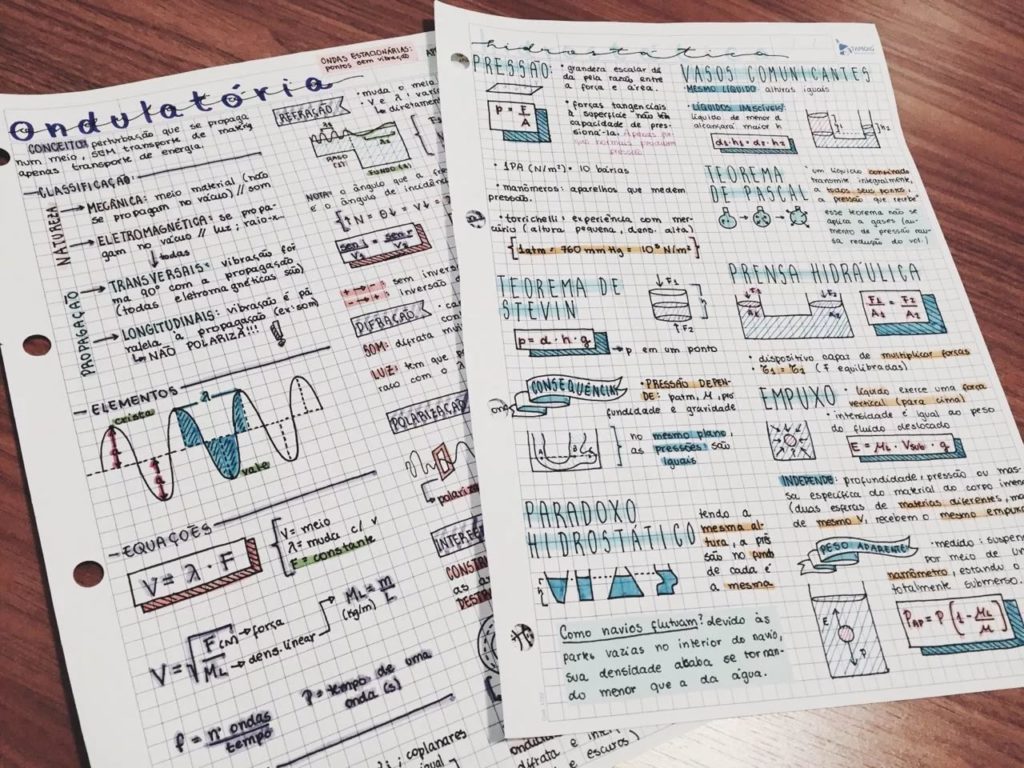 ONDAS ESTACIONÁRIAS:
pontos sem vibração
Ondulatória
CONCEITO: perturbação que se propaga
num meio, SEM transporte de matéria
apenas transporte de energia.
CLASSIFICAÇÃO:
NATUREZA
MECÂNICA: meio material (não
se propagam no vácuo) // som
ELETROMAGNÉTICA: se propa-
gam no vácuo // luz, raio-x
todas
PROPAGAÇÃO
TRANSVERSAIS: vibração for
ma 90° com a propagação
(todas eletromagnéticas são)
LONGITUDINAIS: vibração é pa
ralela a propagação (ex: som)
↳ NÃO POLARIZA!!!
- ELEMENTOS
crista
a
λ
a
vale
- EQUAÇÕES
V = λ · F
V = meio
λ = muda c/ v
F = constante
V = √F(N) → força
ML → dens. linear
ML = m/L
(kg/m)
P = tempo de uma
onda (s)
f = n° ondas
tempo
REFRAÇÃO
• muda o meio
• V e λ: vari
diretamente
RASO
FUNDO
NOTA: o ângulo que a fre
é o ângulo de incidência
↑N = θ↓ = V↓ =
sen i = sen r
V1 V2
sem invers
inversão
DIFRAÇÃO
SOM: difrata mui
LUZ: tem que
raco com o λ
POLARIZAÇÃO
polariza
INTERFE
CONSTR
as
DESTR
; coplanares
igual
ondula
difrata e inte
e escuros)
hidrostática
PRESSÃO:
• grandeza escalar de
da pela razão entre
a força e área.
P = F/A
• forças tangenciais
à superfície não têm
capacidade de pres-
sioná-la. Apenas for
ças normais produzem
pressão.
• 1PA (N/m²) = 10 bárias
• manômeros: aparelhos que medem
pressão.
• torrichelli: experiência com mer-
cúrio (altura pequena, dens. alta)
1atm = 760 mm Hg = 10⁵ N/m²
TEOREMA DE
STEVIN
F1
h
F2
p = d · h · g
→ p em um ponto
CONSEQUÊNCIA
• PRESSÃO DEPEN-
DE: patm, M, pro
fundidade e gravidade
no mesmo plano
as pressões são
iguais
PARADOXO
HIDROSTÁTICO
tendo a
mesma al-
tura, a prê
são no fundo
de cada é
a mesma
h
Como navios flutuam? devido às
partes vazias no interior do navio,
sua densidade ababa se tornan-
do menor que a da água.
VASOS COMUNICANTES
MESMO LÍQUIDO alturas iguais
• LÍQUIDOS IMISCÍVEIS:
líquido de menor d
alcançará maior h
d1 · h1 = d2 · h2
h2
TEOREMA
DE PASCAL
um líquido confinado
transmite integralmente,
a todos seus pontos,
a pressão que recebe
esse teorema não se
aplica a gases (au-
mento de pressão cau
sa redução do vol.)
PRENSA HIDRÁULICA
F1
F2
A1
A2
F1 = F2
A1 A2
• dispositivo capaz de multiplicar forças
• τ1 = τ2 (F equilibradas)
EMPUXO
• líquido exerce uma força
vertical (para cima)
• intensidade é igual ao peso
do fluido deslocado
E = ML · Vsub · g
INDEPENDE: profundidade, pressão ou mas-
sa específica do material do corpo imerso
(duas esferas de materiais diferentes, mas
de mesmo V, recebem o mesmo empuxo
PESO APARENTE
• medido: suspen
por meio de um
narrômetro, estando o
totalmente submerso.
E
P
PAP = P (1 - ML/M)